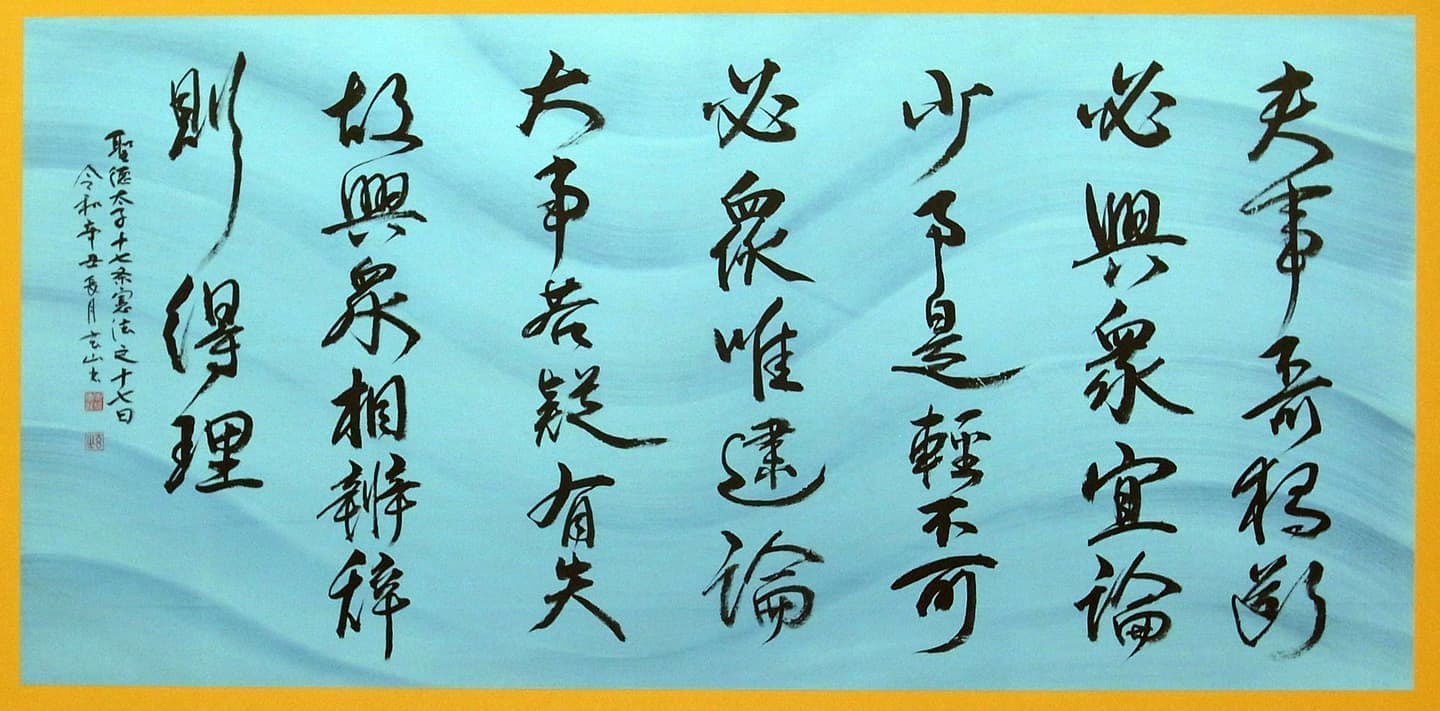 夫事不可独断
必與衆宜論
少事是輕不可
必衆唯逮論
大事若疑有失
故與衆相辨辞
則得理
聖徳太子十七条憲法之十七曰
令和辛丑長月玄山書